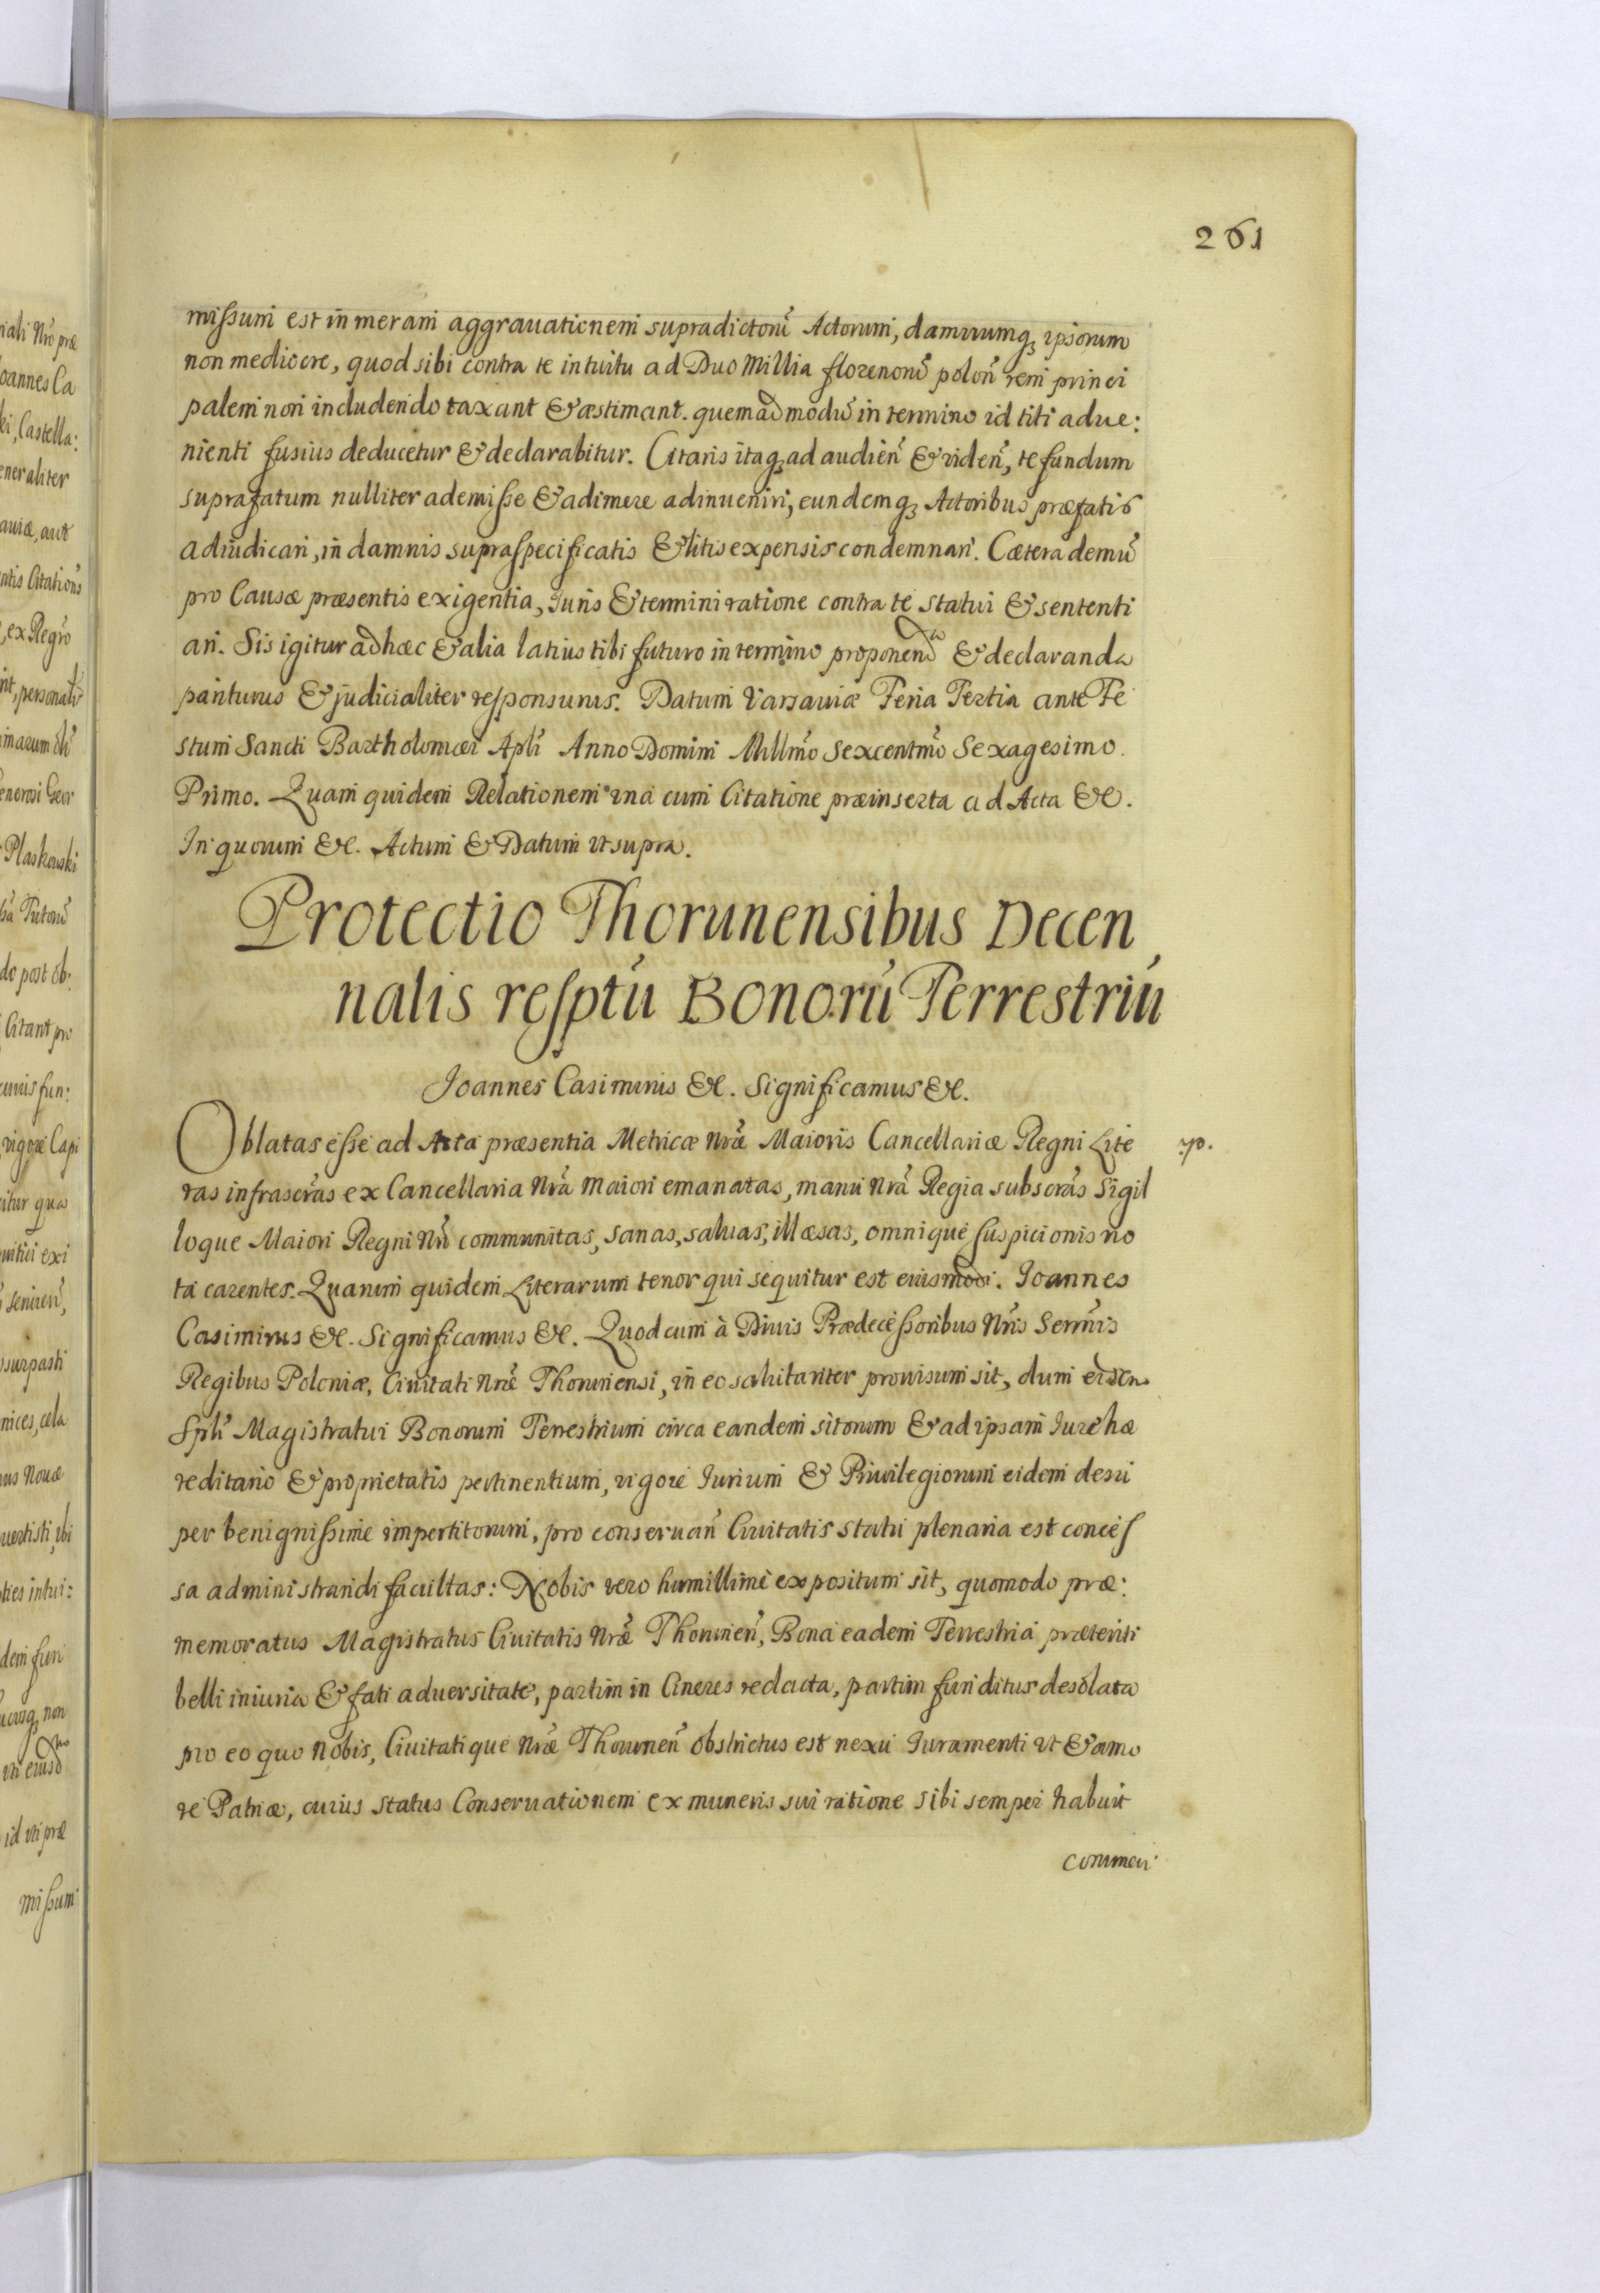 261
missum est in meram aggrauationem supradictorũ Actorum, damnumqꝫ ipsorum
non mediocre, quod sibi contra te intuitu ad Duo Millia florenorũ poloñ rem princi
palem non includendo taxant & æstimant. quemadmodũ in termino id titi adue:
nienti fusius deducetur & declarabitur. Citaris itaqꝫ ad audieñ & videñ, te fundum
suprafatum nulliter ademisse & adimere adinueniri, eundemqꝫ Actoribus præfatis
adiudicari, in damnis supraspecificatis & litis expensis condemnari. Cætera demũ
pro Causæ præsentis exigentia, Iuris & termini ratione contra te statui & sententi
ari. Sis igitur ad hæc & alia latius tibi futuro in termino proponenda & declaranda
pariturus & judicialiter responsurus. Datum Varsauiæ Feria Tertia ante Fe
stum Sancti Bartholomæi Apli Anno Domini Millmo Sexcentmo Sexagesimo
Primo. Quam quidem Relationem vna cum Citatione præinserta ad Acta &c.
In quorum &c. Actum & Datum vt supra.
Protectio Thorunensibus Decen
nalis resptũ Bonorũ Terrestriũ
Joannes Casimirus &c. Significamus &c.
Oblatas esse ad Acta præsentia Metricæ nræ Maioris Cancellariæ Regni Lite
ras infrascras ex Cancellaria nra maiori emanatas, manu nra Regia subscras Sigil
loque Maiori Regni nri communitas, sanas, saluas, illæsas, omnique suspicionis no
ta carentes. Quarum quidem Literarum tenor qui sequitur est eiusmodi. Joannes
Casimirus &c. Significamus &c. Quod cum à Diuis Prædecessoribus nris Sermis
Regibus Poloniæ, Ciuitati nræ Thorunensi, in eo salutariter prouisum sit, dum eidem
Spli Magistratui Bonorum Terrestrium circa eandem sitorum & ad ipsam Iure hæ
reditario & proprietatis pertinentium, vigore Iurium & Priuilegiorum eidem desu
per benignissime impertitorum, pro conseruañ Ciuitatis statu plenaria est conces
sa administrandi facultas: Nobis vero humillime expositum sit, quomodo præ:
memoratus Magistratus Ciuitatis nræ Thoruneñ, Bona eadem Terrestria præteriti
belli iniuria & fati aduersitate, partim in Cineres redacta, partim funditus desolata
pro eo quo nobis, Ciuitatique nræ Thoruneñ obstrictus est nexu Iuramenti vt & amo
re Patriæ, cuius status Conseruationem ex muneris sui ratione sibi semper habuit
commen